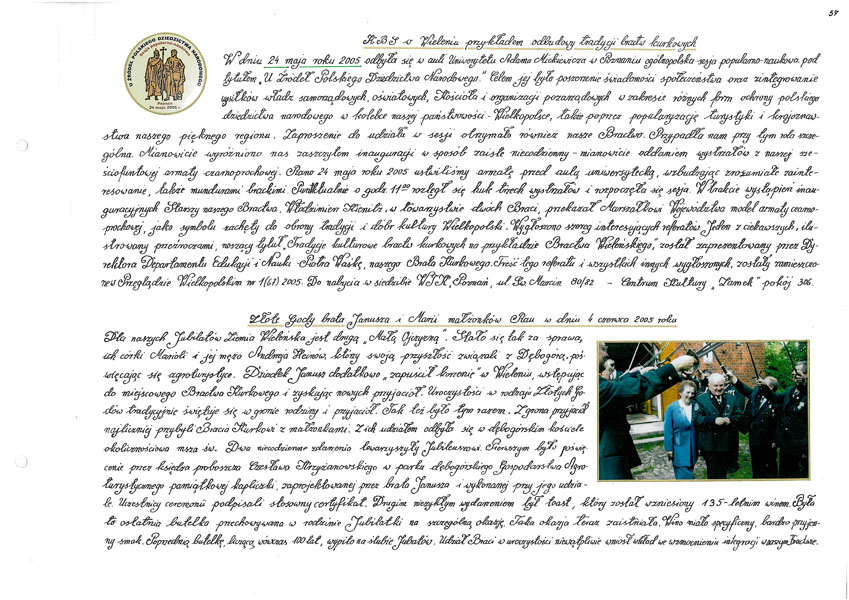 57
KBS w Wieleniu przykładem odbudowy tradycji bractw kurkowych
U ŹRÓDEŁ POLSKIEGO DZIEDZICTWA NARODOWEGO
Sesja popularno-naukowa
Poznań
24 maja 2005 r.
W dniu 24 maja roku 2005 odbyła się w auli Uniwersytetu Adama Mickiewicza w Poznaniu ogólnopolska sesja popularno-naukowa pod
tytułem „U Źródeł Polskiego Dziedzictwa Narodowego". Celem jej było poszerzenie świadomości społeczeństwa oraz zintegrowanie
wysiłków władz samorządowych, oświatowych, Kościoła i organizacji pozarządowych w zakresie różnych form ochrony polskiego
dziedzictwa narodowego w kolebce naszej państwowości - Wielkopolsce, także poprzez popularyzację turystyki i krajoznaw-
stwa naszego pięknego regionu. Zaproszenie do udziału w sesji otrzymało również nasze Bractwo. Przypadła nam przy tym rola szcze-
gólna. Mianowicie wyróżniono nas zaszczytem inauguracji w sposób zaiste niecodzienny - mianowicie oddaniem wystrzałów z naszej sze-
ściofuntowej armaty czarnoprochowej. Rano 24 maja roku 2005 ustwiliśmy armatę przed aulą uniwersytecką, wzbudzając zrozumiałe zainte-
resowanie, także mundurami brackimi. Punktualnie o godz. 11⁰⁰ rozległ się huk trzech wystrzałów i rozpoczęła się sesja. W trakcie wystąpień inau-
guracyjnych Starszy naszego Bractwa, Włodzimierz Kienitz, w towarzystwie dwóch Braci, przekazał Marszałkowi Województwa model armaty czarno-
prochowej, jako symbolu zachęty do obrony tradycji i dóbr kultury Wielkopolski. Wygłoszono szereg interesujących referatów. Jeden z ciekawszych, ilu-
strowany przeźroczami, noszący tytuł „Tradycje kulturowe bractw kurkowych na przykładzie Bractwa Wieleńskiego", został zaprezentowany przez Dy-
rektora Departamentu Edukacji i Nauki - Piotra Waśkę, naszego Brata Kurkowego. Treść tego referatu i wszystkich innych wygłoszonych, zostały zamieszczo-
ne w Przeglądzie Wielkopolskim nr 1(67) 2005. Do nabycia w siedzibie WTK, Poznań, ul. Św. Marcin 80/82 - Centrum Kultury „Zamek" pokój 306.
Złote Gody brata Janusza i Marii małżonków Rau w dniu 4 czerwca 2005 roku
Dla naszych Jubilatów Ziemia Wieleńska jest drugą „Małą Ojczyzną". Stało się tak za sprawą
ich córki Marioli i jej męża Andrzeja Heinów, który swoją przyszłość związali z Dębogórą, poś-
więcając się agroturystyce. Dziadek Janusz dodatkowo „zapuścił korzenie" w Wieleniu, wstępując
do miejscowego Bractwa Kurkowego i zyskując nowych przyjaciół. Uroczystości w rodzaju Złotych Go-
dów tradycyjnie świętuje się w gronie rodziny i przyjaciół. Tak też było tym razem. Z grona przyjaciół
najliczniej przybyli Bracia Kurkowi z małżonkami. Z ich udziałem odbyła się w dębogórskim kościele
okolicznościowa msza św. Dwa niecodzienne zdarzenia towarzyszyły Jubileuszowi. Pierwszym było poświę-
cenie przez księdza proboszcza Czesława Strzyżanowskiego w parku dębogórskiego Gospodarstwa Agro-
turystycznego pamiątkowej kapliczki, zaprojektowanej przez brata Janusza i wykonanej przy jego udzia-
le. Uczestnicy ceremonii podpisali stosowny certyfikat. Drugim niezwykłym wydarzeniem był toast, który został wzniesiony 135-letnim winem. Była
to ostatnia butelka przechowywana w rodzinie Jubilatki na szczególną okazję. Taka okazja teraz zaistniała. Wino miało specyficzny, bardzo przyjem-
ny smak. Poprzednią butelkę, liczącą wówczas 100 lat, wypito na ślubie Jubilatów. Udział Braci w uroczystości niewątpliwie wniósł wkład we wzmocnieniu integracji w naszym Bractwie.